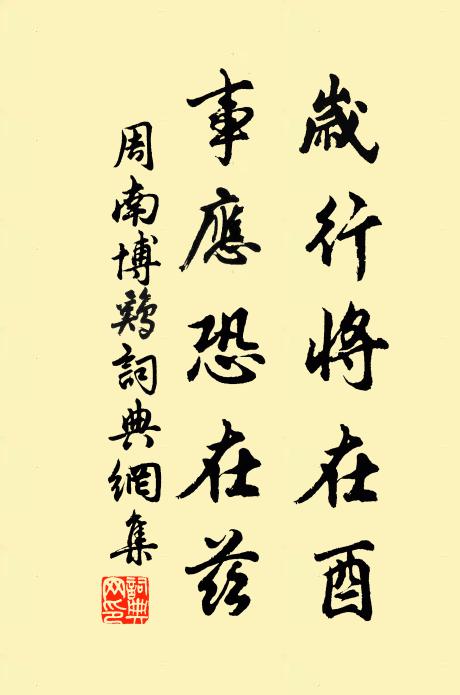 歲行將在酉
事應恐在茲
周南博鷄詞典網集
詞典